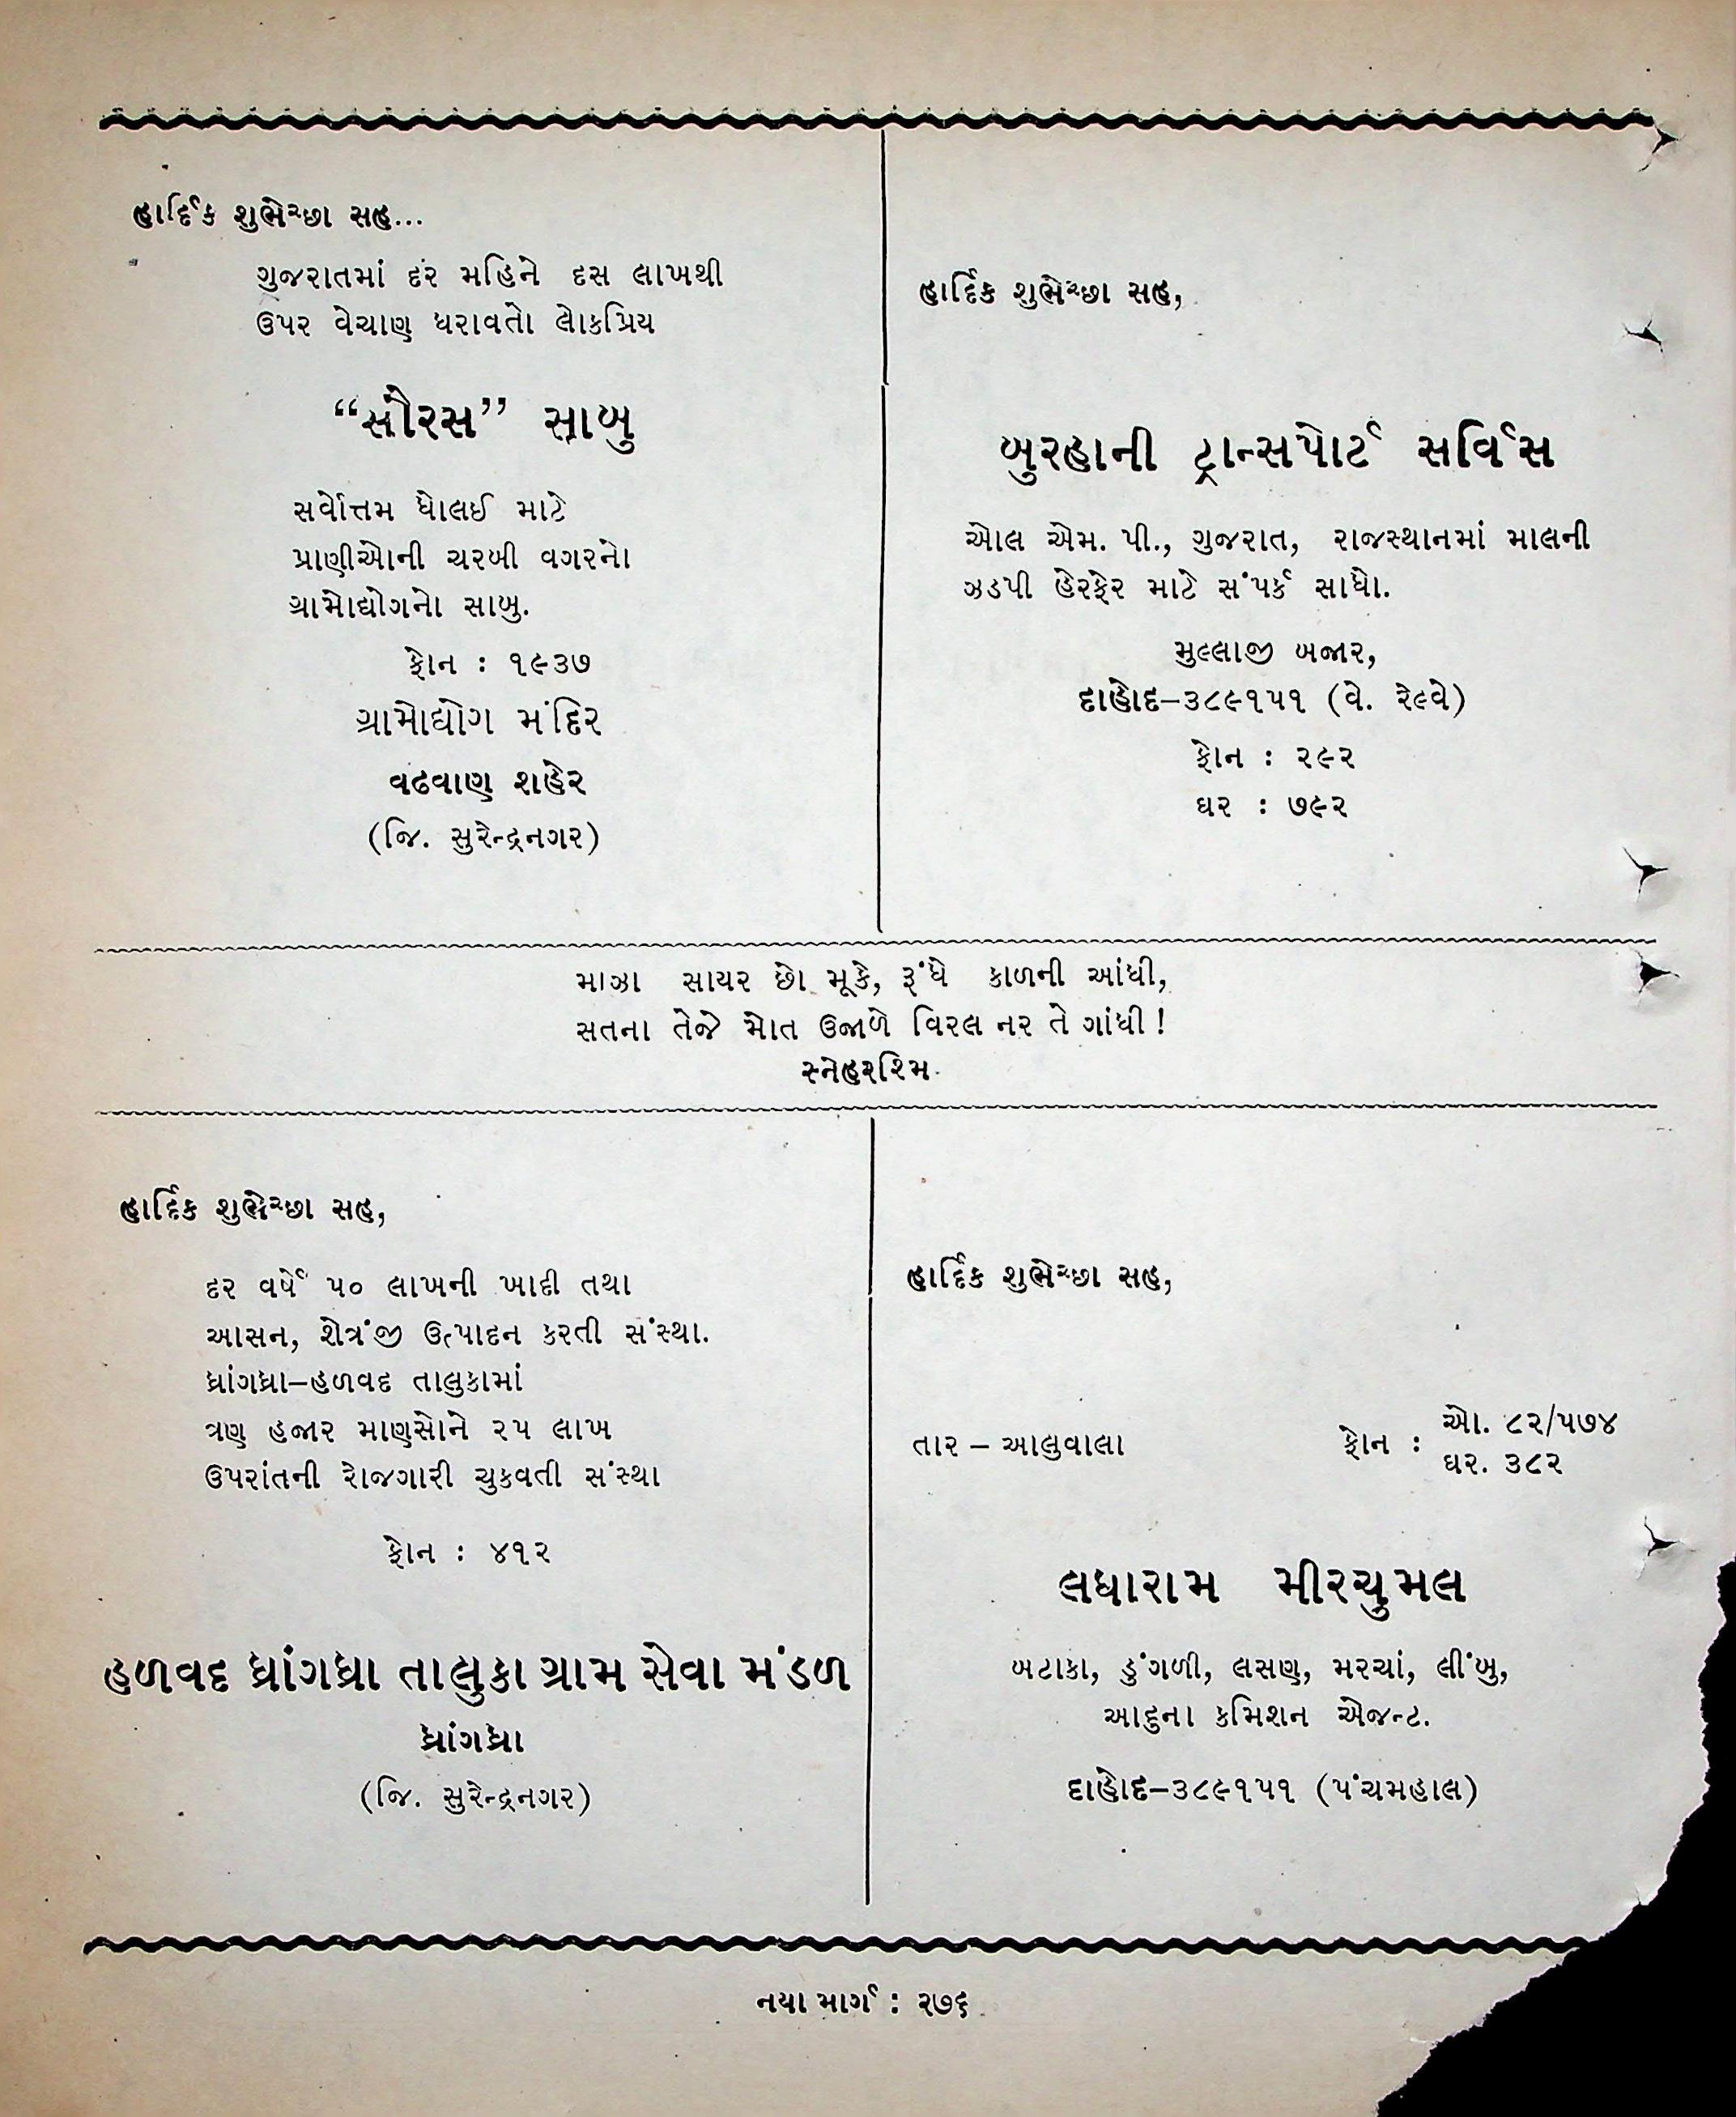 હાર્દિક શુભેચ્છા સહ...
ગુજરાતમાં દર મહિને દસ લાખથી
ઉપર વેચાણ ધરાવતો લોકપ્રિય
“સૌરસ” સાબુ
સર્વોત્તમ ધોલઈ માટે
પ્રાણીઓની ચરબી વગરનો
ગ્રામોદ્યોગનો સાબુ.
ફોન : ૧૯૩૭
ગ્રામોદ્યોગ મંદિર
વઢવાણ શહેર
(જિ. સુરેન્દ્રનગર)
હાર્દિક શુભેચ્છા સહ,
બુરહાની ટ્રાન્સપોર્ટ સર્વિસ
ઓલ એમ. પી., ગુજરાત, રાજસ્થાનમાં માલની
ઝડપી હેરફેર માટે સંપર્ક સાધો.
મુલ્લાજી બજાર,
દાહોદ–૩૮૯૧૫૧ (વે. રેલ્વે)
ફોન : ૨૯૨
ઘર : ૭૯૨
માઝા સાયર છો મૂકે, રૂંધે કાળની આંધી,
સતના તેજે મોત ઉજાળે વિરલ નર તે ગાંધી!
સ્નેહરશ્મિ
હાર્દિક શુભેચ્છા સહ,
દર વર્ષે ૫૦ લાખની ખાદી તથા
આસન, શેત્રંજી ઉત્પાદન કરતી સંસ્થા.
ધ્રાંગધ્રા–હળવદ તાલુકામાં
ત્રણ હજાર માણસોને ૨૫ લાખ
ઉપરાંતની રોજગારી ચુકવતી સંસ્થા
ફોન : ૪૧૨
હળવદ ધ્રાંગધ્રા તાલુકા ગ્રામ સેવા મંડળ
ધ્રાંગધ્રા
(જિ. સુરેન્દ્રનગર)
હાર્દિક શુભેચ્છા સહ,
તાર – આલુવાલા ફોન : ઓ. ૮૨/૫૭૪
ઘર. ૩૮૨
લધારામ મીરચુમલ
બટાકા, ડુંગળી, લસણ, મરચાં, લીંબુ,
આદુના કમિશન એજન્ટ.
દાહોદ–૩૮૯૧૫૧ (પંચમહાલ)
નયા માર્ગ : ૨૭૬